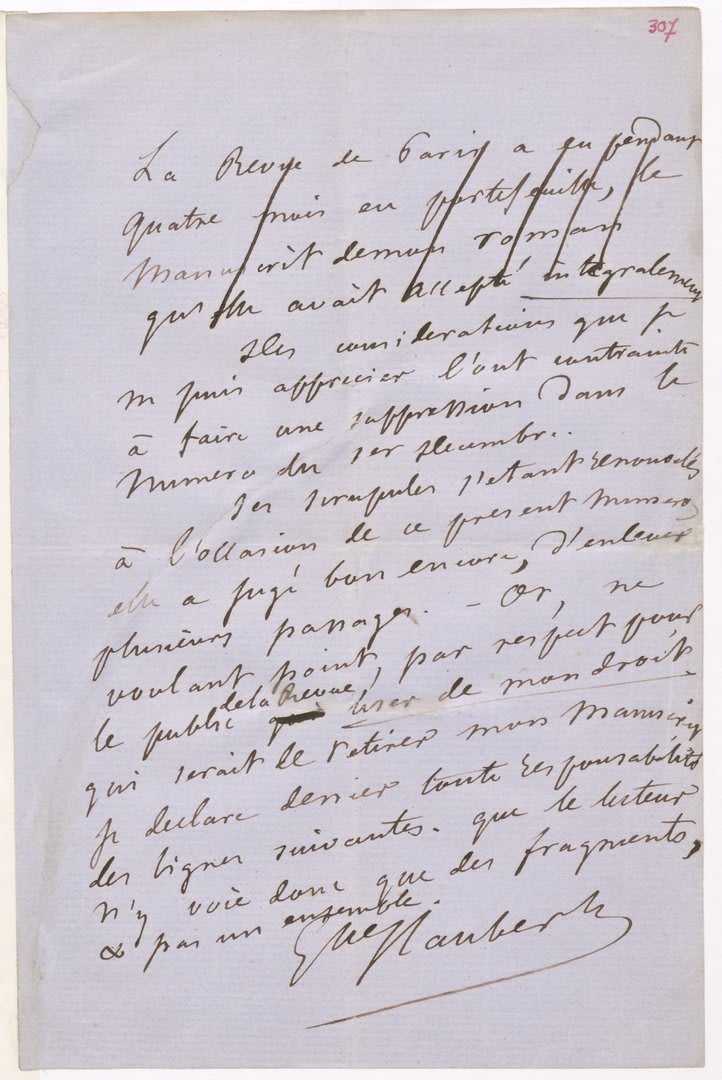 307
La Revue de Paris a eu pendant
quatre mois en portefeuille, le
manuscrit de mon roman
qu'elle avait accepté intégralement
Des considerations que je
n puis apprecier l'ont contrainte
à faire une suppression dans le
Numero du 1er Decembre.
Ses scrupules s'etant renouvelés
à l'occasion de ce present numero,
elle a jugé bon encore, d'enlever
plusieurs passages. - Or, ne
voulant point, par respect pour
le public de la Revue user de mon droit
qui serait de retirer mon manuscrit
je declare denier toute responsabilité
des lignes suivantes. que le lecteur
n'y voie donc que des fragments,
& pas un ensemble.
Gve Flaubert